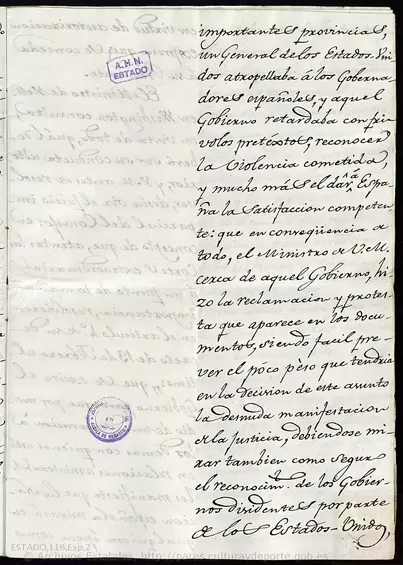 importantes provincias,
un General de los Estados-Uni
dos atropellaba á los Goberna
dores españoles, y aquel
Gobierno retardaba con fri
volos pretéxtos, reconocer
la Violencia cometida,
y mucho más el dar á Espa
ña la Satisfaccion competen
te: que en conseqüencia de
todo, el Ministro de V.M.
cerca de aquel Gobierno, hi
zo la reclamacion y protes
ta que aparece en los docu
mentos, siendo facil pre
ver el poco péso que tendria
en la decision de este asunto
la desnuda manifestacion
de la justicia, debiendose mi
rar tambien como seguro
el reconocim.to de los Gobier
nos disidentes por parte
de los Estados-Unidos,
A.H.N.
ESTADO
ESTADO,116,Exp.2
© Archivos Estatales, http://pares.culturaydeporte.gob.es